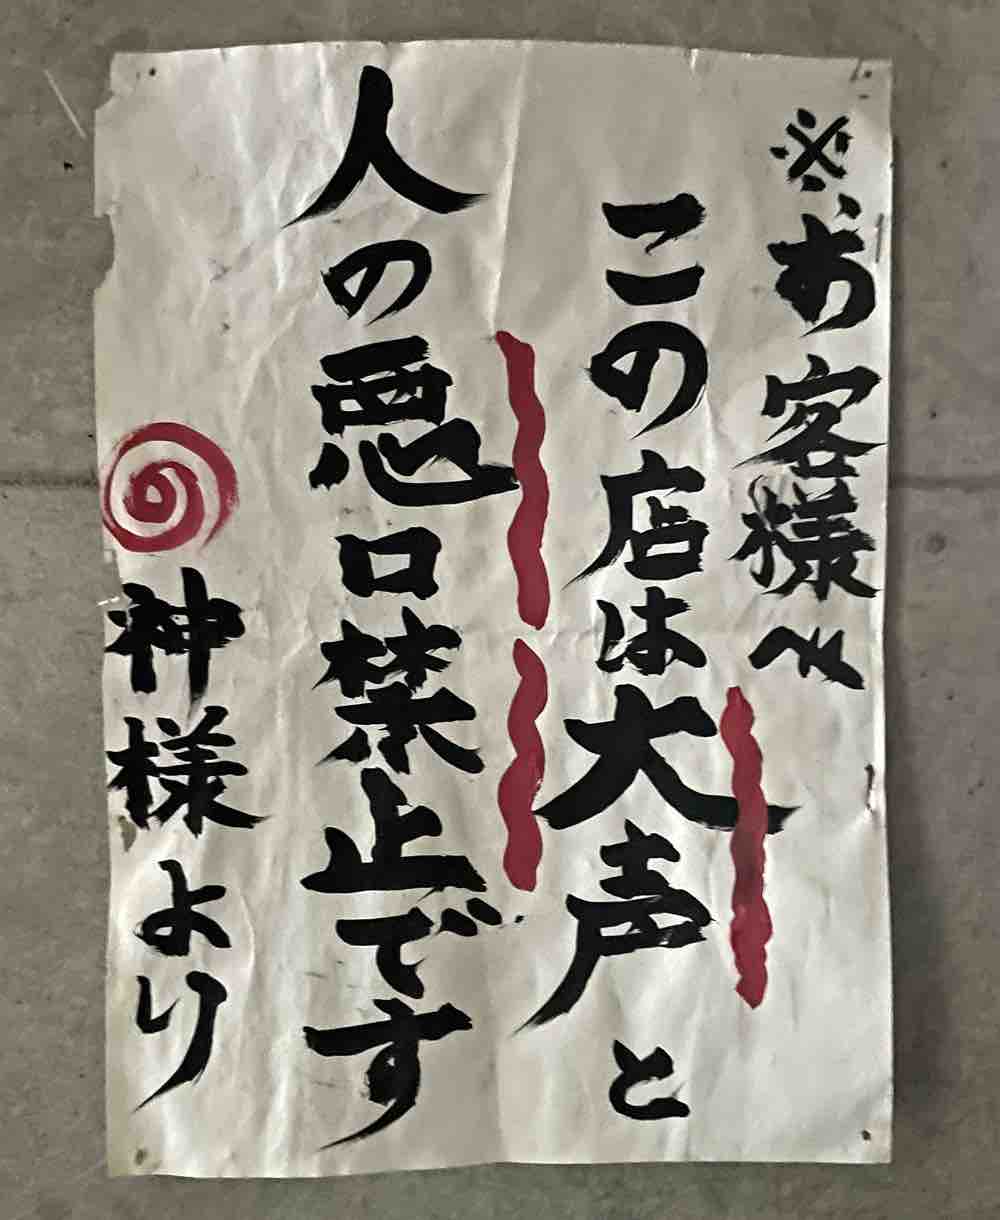 ※お客様へ
この店は大声と
人の悪口禁止です
神様より